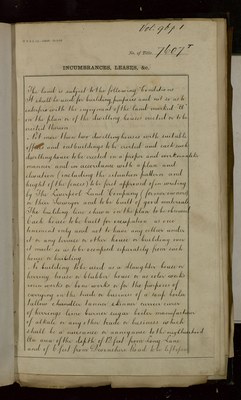 Vol. 96 p 1
No. of Title, 7607
INCUMBRANCES, LEASES, &c.
The land is subject to the following Conditions
It shall be used for building purposes and not so as to
interfere with the enjoyment of the land marked
on the plan or of the dwelling houses erected or to be
erected thereon
Not more than two dwelling houses with suitable
offices and outbuildings to be erected and each such
dwelling house to be erected in a proper and workmanlike
manner and in accordance with a plan and
elevation (including the situation pattern and
height of the fences) to be first approved of in writing
by The Liverpool Land Company
or their Surveyor and to be built of good materials
The building line shown on the plan to be observed
Each house to be built for occupation as one
tenement only and not to have any other under
it or any house or other house or building over
it made so as to be occupied separately from such
house or building
No building to be used as a slaughter house
or as coke works
or for the purpose of
carrying on the trade or business of a soap boiler
tallow chandler tanner skinner
of herrings lime burner sugar boiler manufacturer
of alkali or any other trade or business which
shall be a nuisance or annoyance to the neighbourhood
An area of the depth of 12 feet from
and of 6 feet from Devonshire Road to be left open